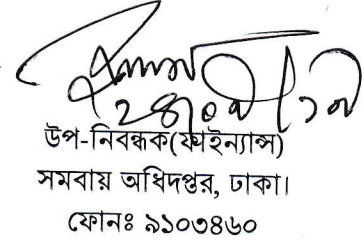 উপ-নিবন্ধক(ফাইন্যান্স)
সমবায় অধিদপ্তর, ঢাকা।
ফোনঃ ৯১০৩৪৬০